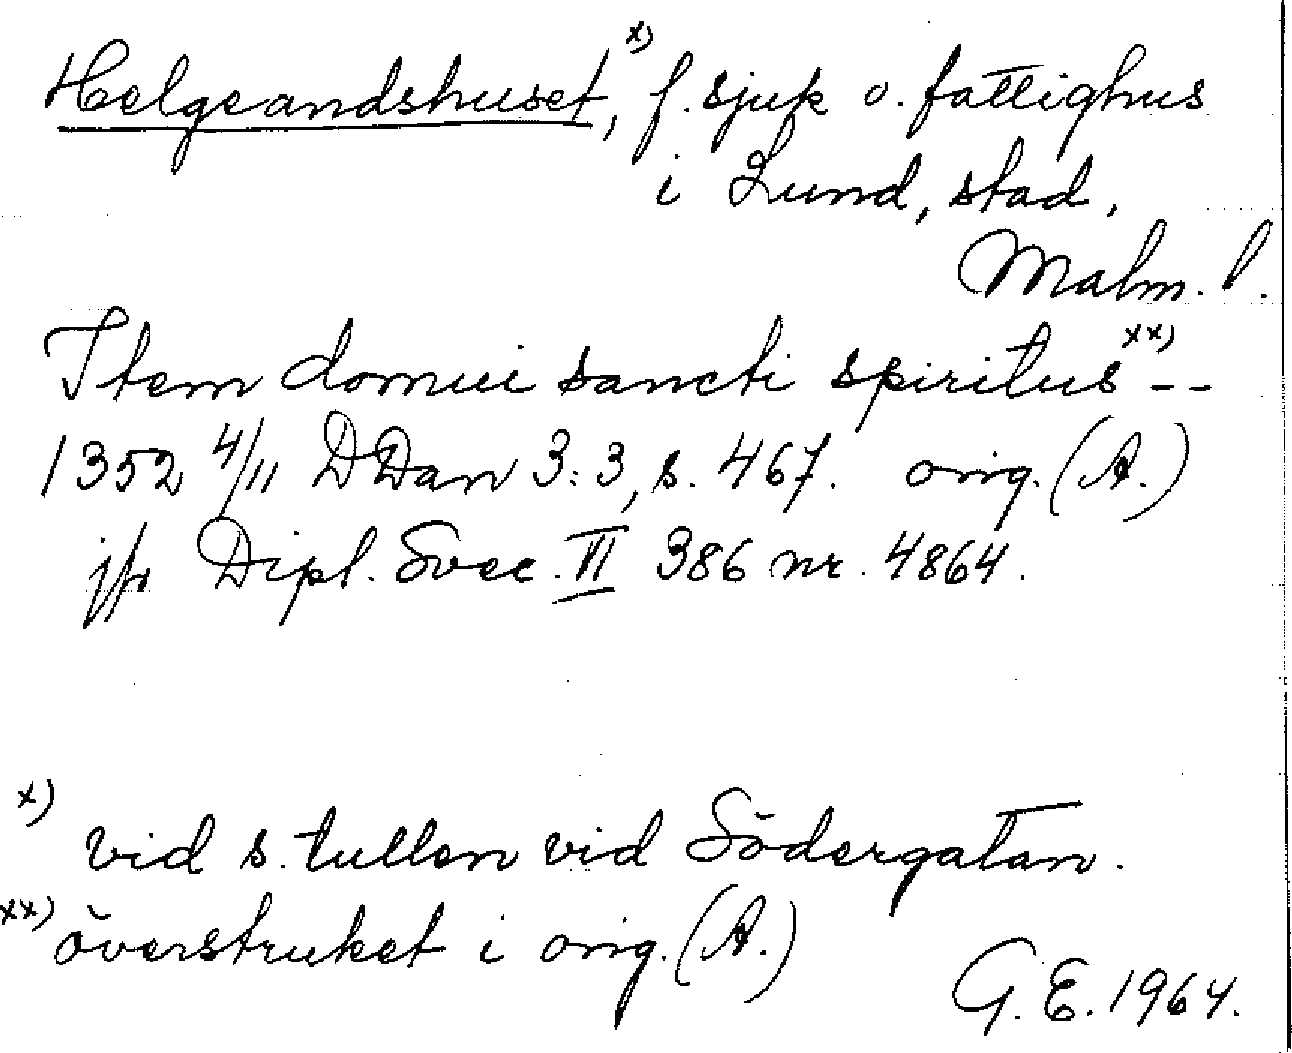 Helgeandshuset,x) f. sjuk o. fattighus
i Lund, stad,
Malm. l.
Item domui sancti spiritusxx) --
1352 4/11 DDan 3:3, s. 467. orig. (A.)
jfr Dipl. Svec. VI 386 nr. 4864.
x) vid s. tullen vid Södergatan.
xx) överstruket i orig. (A.)
G. E. 1964.